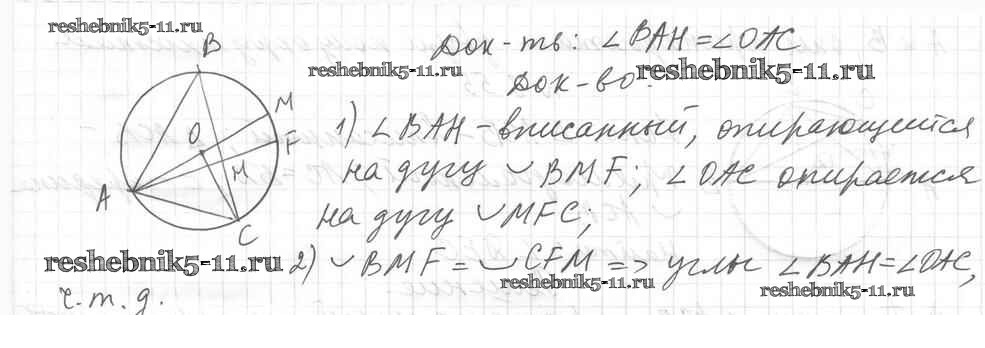 reshebnik5-11.ru
B
Док-ть: ∠BAH = ∠OAC
reshebnik5-11.ru
reshebnik5-11.ru
Док-во:
M
O
F
H
A
C
1) ∠BAH - вписанный, опирающейся
на дугу ◡ BMF; ∠OAC опирается
на дугу ◡MFC;
reshebnik5-11.ru
2) ◡BMF = ◡CFM => углы ∠BAH = ∠OAC,
reshebnik5-11.ru
reshebnik5-11.ru
ч.т.д.